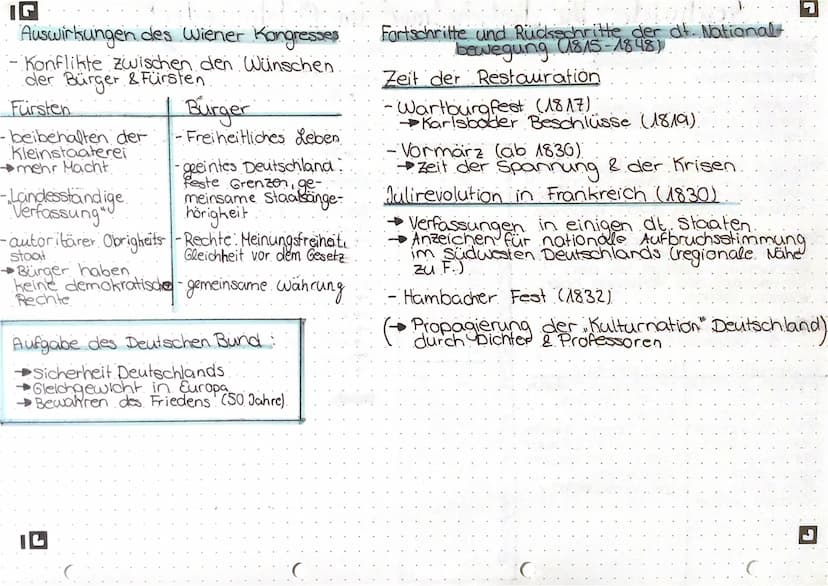 Auswirkungen des Wiener Kongresses
- Konflikte zwischen den Wünschen
der Bürger & Fürsten
Fürsten
- beibehalten der
Kleinstaaterei
→ mehr Macht
- „Landesständige
Verfassung"
- autoritärer Obrigkeits
staat
→ Bürger haben
keine demokratische
Rechte
Bürger
- Freiheitliches Leben
- geeintes Deutschland:
feste Grenzen, ge-
meinsame Staatsange-
hörigkeit
- Rechte: Meinungsfreiheit,
Gleichheit vor dem Gesetz
- gemeinsame Währung
Aufgabe des Deutschen Bund:
→ Sicherheit Deutschlands
→ Gleichgewicht in Europa
→ Bewahren des Friedens (50 Jahre)
Fortschritte und Rückschritte der dt. National-
bewegung (1815-1848)
Zeit der Restauration
- Wartburgfest (1817)
→ Karlsbader Beschlüsse (1819)
- Vormärz (ab 1830)
→ Zeit der Spannung & der Krisen
Julirevolution in Frankreich (1830)
→ Verfassungen in einigen dt. Staaten
→ Anzeichen für nationale Aufbruchsstimmung
im Südwesten Deutschlands (regionale Nähe
zu F.)
- Hambacher Fest (1832)
(→ Propagierung der „Kulturnation" Deutschland)
durch Dichter & Professoren